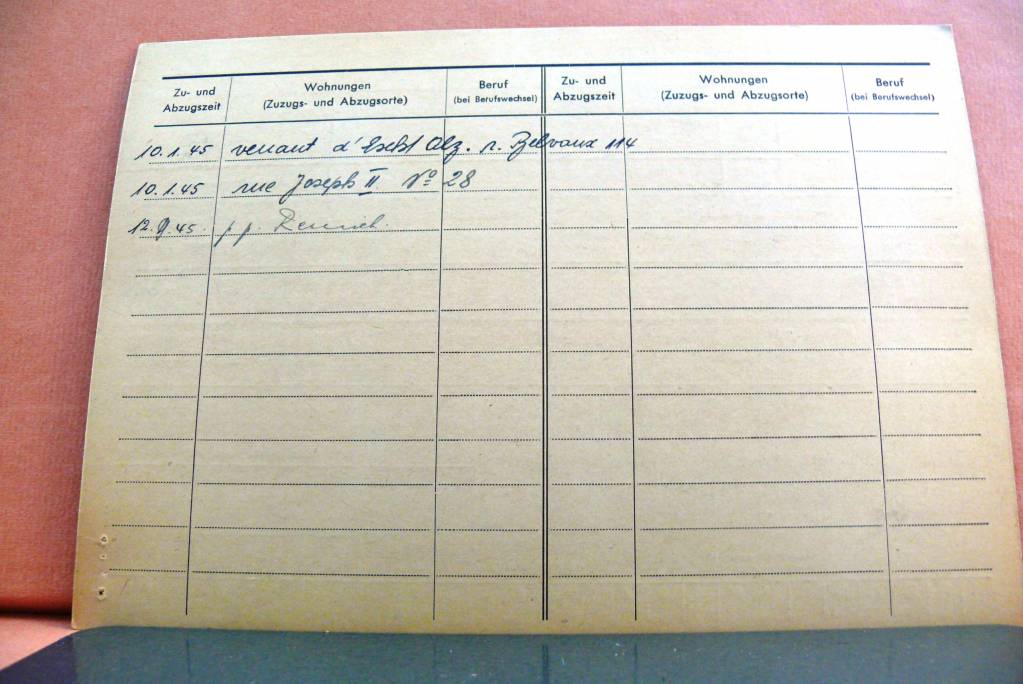 Zu- und Abzugszeit
Wohnungen (Zuzugs- und Abzugsorte)
Beruf (bei Berufswechsel)
Zu- und Abzugszeit
Wohnungen (Zuzugs- und Abzugsorte)
Beruf (bei Berufswechsel)
10.1.45 venant d'Esch/ Alz. r. Belvaux 114
10.1.45 rue Joseph II Nº 28
12.9.45. p.p. Remich.